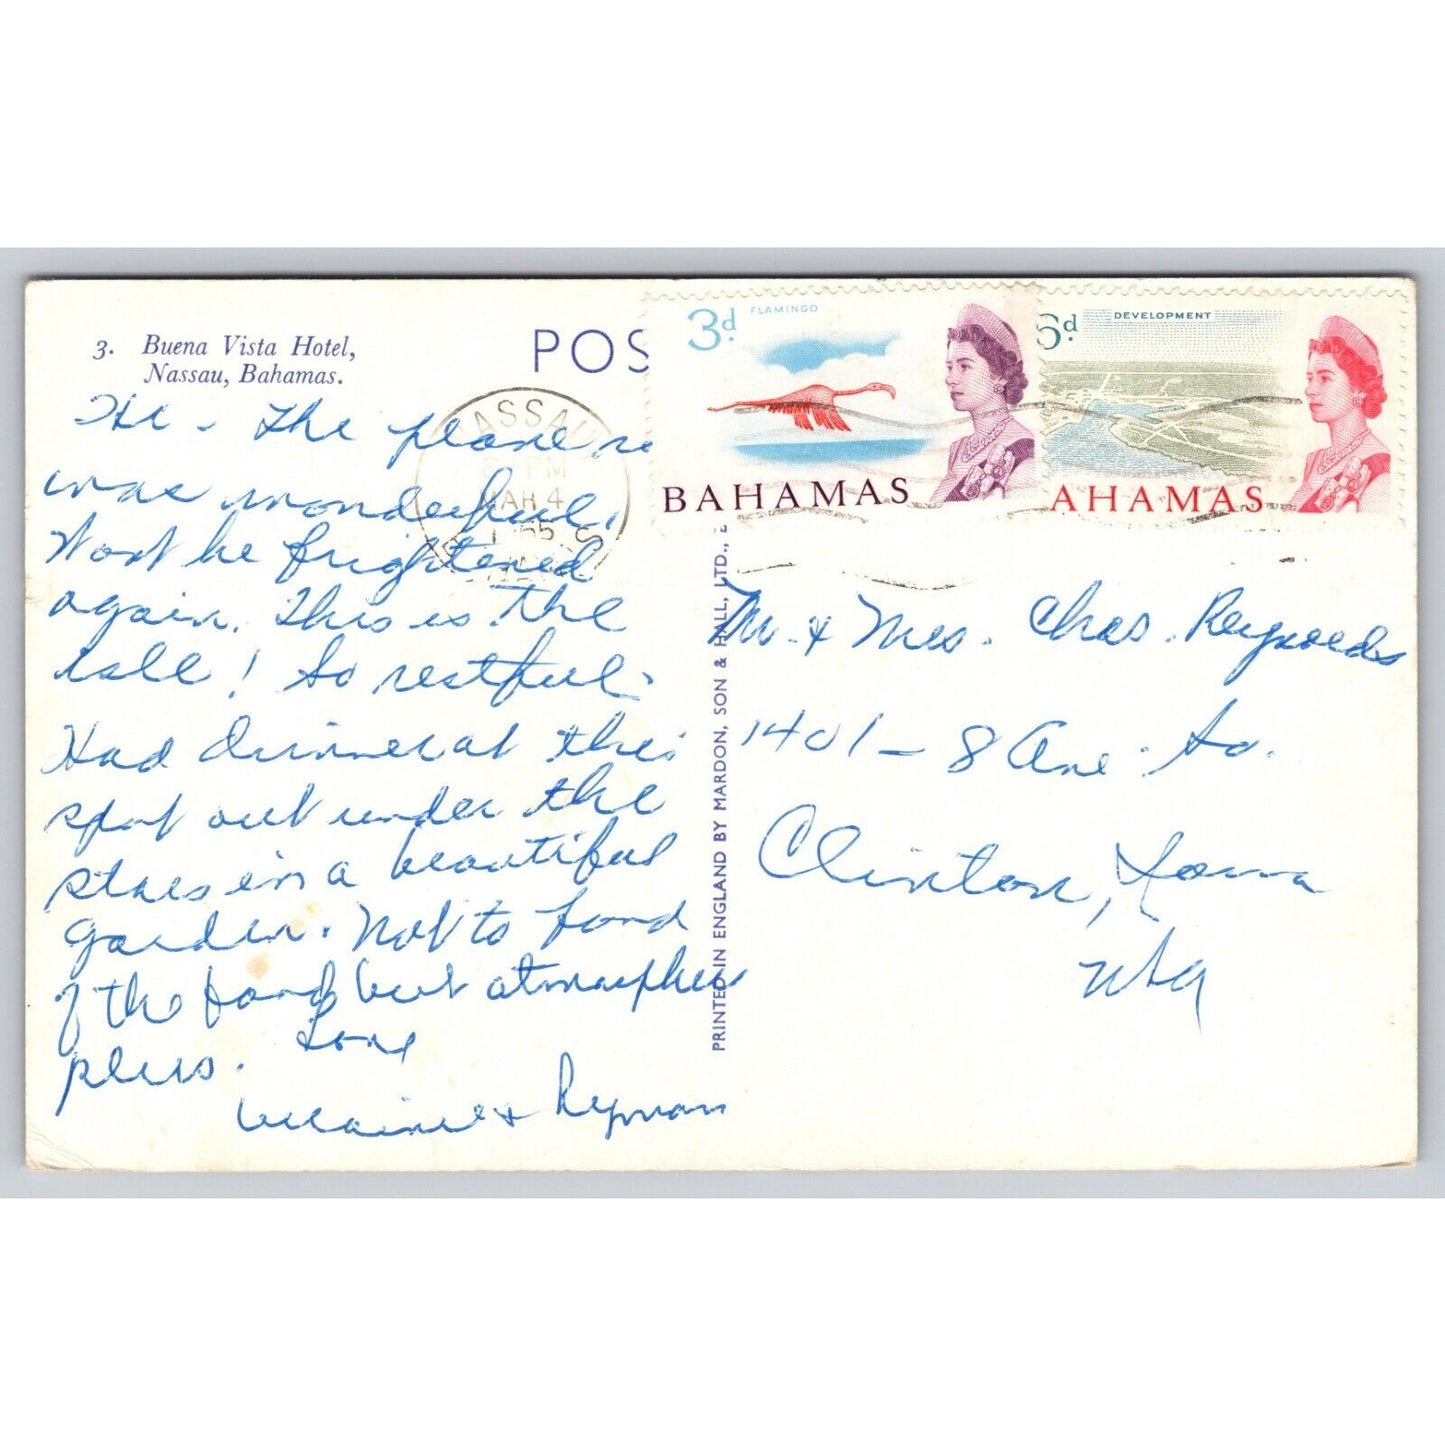 3. Buena Vista Hotel,
Nassau, Bahamas.
POS
Hi - The plane r
was wonderful.
Wont be frightened
again. This is the
isle! So restful.
Had dinner at this
spot out under the
stars in a beautiful
garden. Not to fond
of the food but atmosphere
plus. Love
& Lyman
NASSAU
PM
MAR 4
BAHAMAS
3d FLAMINGO
BAHAMAS
6d DEVELOPMENT
AHAMAS
PRINTED IN ENGLAND BY MARDON, SON & HALL, LTD.,
Mr. & Mrs. Chas. Reynolds
1401 - 8 Ave. So.
Clinton, Iowa
USA